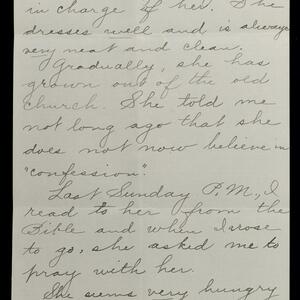 in charge of her. She
dresses well and is always
very neat and clean.
Gradually, she has
grown out of the old
church. She told me
not long ago that she
does not now believe in
"confession".
Last Sunday P.M., I
read to her from the
Bible and when I rose
to go, she asked me to
pray with her.
She seems very hungry